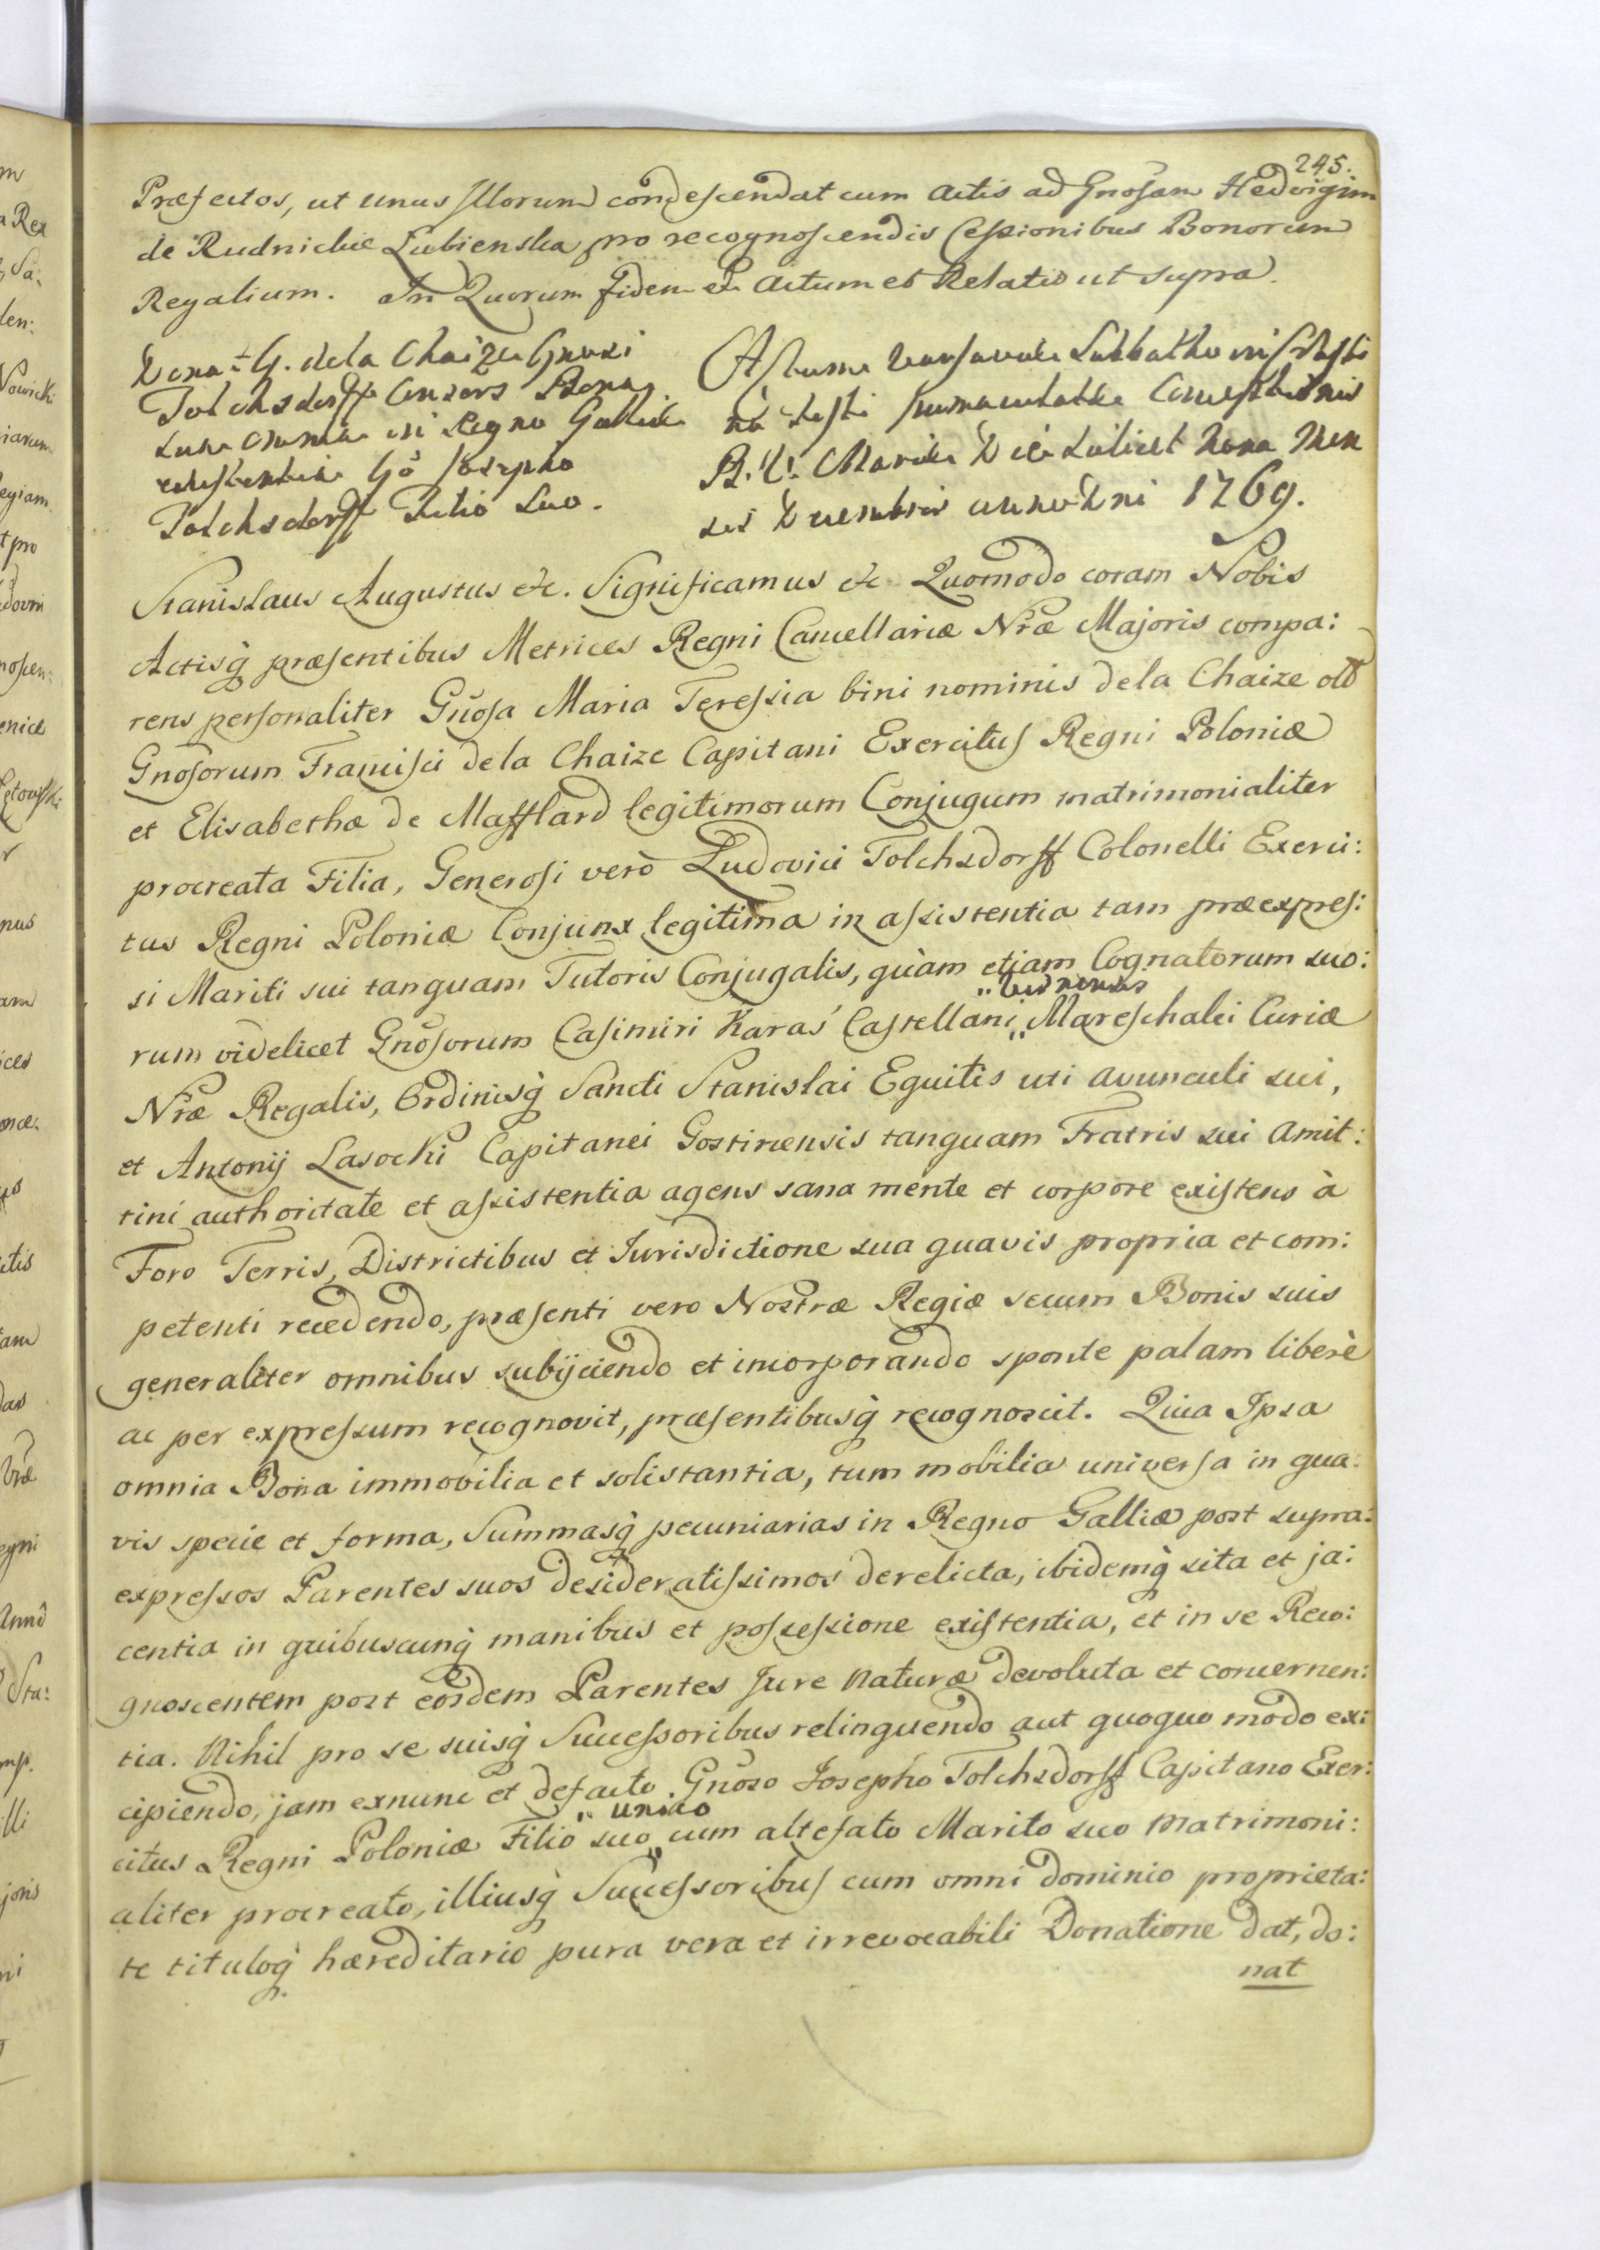 245.
Præfectos, ut unus Illorum condescendat cum Actis ad Gnosam Hedvigim
de Rudnickie Lubienska pro recognoscendis Cessionibus Bonorum
Regalium. In Quorum fidem &c Actum et Relatio ut supra.
Dona͞t G. de la Chaize Gnosi
Tolchsdorff Consors Bona
sua omnia in Regno Galliæ
existentia Gō Josepho
Tolchsdorff Filio Suo.
Actum Varsaviæ Sabbatho
na Festi Immaculatæ Conceptionis
B. V. Mariæ Die scilicet Nona Men
sis Decembris anno Dni 1769.
Stanislaus Augustus &c. Significamus &c Quomodo coram Nobis
Actisq̀ præsentibus Metrices Regni Cancellariæ Nræ Majoris compa:
rens personaliter Gnosa Maria Teressia bini nominis de la Chaize olt
Gnosorum Francisci de la Chaize Capitani Exercitus Regni Poloniæ
et Elisabethæ de Mafflard legitimorum Conjugum matrimonialiter
procreata Filia, Generosi verò Ludovici Tolchsdorff Colonelli Exerci:
tus Regni Poloniæ Conjunx legitima in assistentia tam præexpres:
si Mariti sui tanquam Tutoris Conjugalis, quàm etiam Cognatorum suo:
rum videlicet Gnosorum Casimiri Karaś Castellani Mareschalci Curiæ
Nræ Regalis, Ordinisq̀ Sancti Stanislai Equitis uti avunculi sui,
et Antonij Lasocki Capitanei Gostinensis tanquam Fratris sui Amit:
tini authoritate et assistentia agens sana mente et corpore existens à
Foro Terris, Districtibus et Jurisdictione sua quavis propria et com:
petenti recedendo, præsenti vero Nostræ Regiæ secum Bonis suis
generaliter omnibus subijciendo et incorporando sponte palam liberè
ac per expressum recognovit, præsentibusq̀ recognoscit. Quia Ipsa
omnia Bona immobilia et solistantia, tum mobilia universa in qua:
vis specie et forma, Summasq̀ pecuniarias in Regno Galliæ post supra:
expressos Parentes suos desideratissimos derelicta, ibidemq̀ sita et ja:
centia in quibuscunq̀ manibus et possessione existentia, et in se Reco:
gnoscentem post eosdem Parentes Jure Naturæ devoluta et concernen:
tia. Nihil pro se suisq̀ Successoribus relinquendo aut quoquo modo ex:
cipiendo, jam exnunc et defacto Gnoso Josepho Tolchsdorff Capitano Exer:
citus Regni Poloniæ Filio suo unico cum altefato Marito suo Matrimoni:
aliter procreato, illiusq̀ Successoribus cum omni dominio proprieta:
te tituloq̀ hæreditario pura vera et irrevocabili Donatione dat, do:
nat